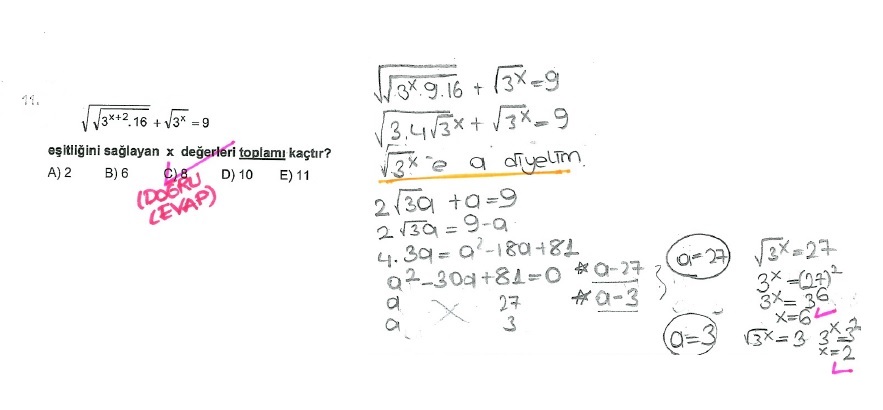 11.
√√3^(x+2).16 + √3^x = 9
eşitliğini sağlayan x değerleri toplamı kaçtır?
A) 2 B) 6 C) 8 D) 10 E) 11
(DOĞRU
CEVAP)
√√3^x.9.16 + √3^x = 9
√3.4√3^x + √3^x = 9
√3^x e a diyelim.
2√3a + a = 9
2√3a = 9-a
4.3a = a²-18a+81
a²-30a+81=0
a 27
a 3
* a-27
* a-3
a=27
√3^x = 27
3^x = (27)²
3^x = 3^6
x=6
a=3
√3^x = 3 3^x = 3²
x=2